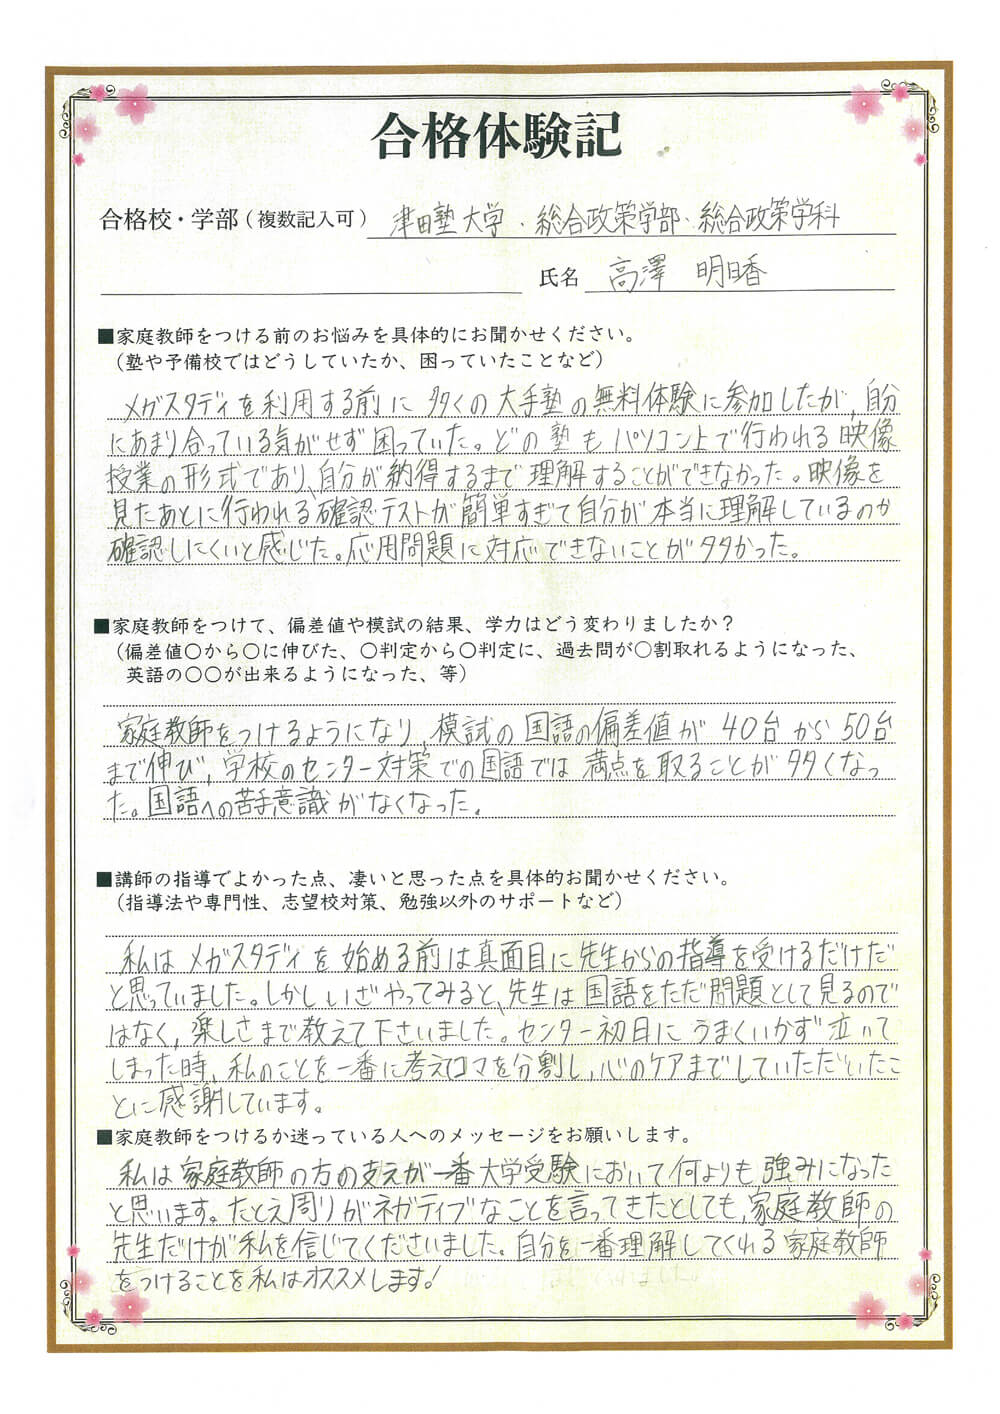 合格体験記
合格校・学部（複数記入可） 津田塾大学・総合政策学部・総合政策学科
氏名 高澤 明日香
■家庭教師をつける前のお悩みを具体的にお聞かせください。
（塾や予備校ではどうしていたか、困っていたことなど）
メガスタディを利用する前に多くの大手塾の無料体験に参加したが、自分
にあまり合っている気がせず困っていた。どの塾もパソコン上で行われる映像
授業の形式であり、自分が納得するまで理解することができなかった。映像を
見たあとに行われる確認テストが簡単すぎて自分が本当に理解しているのか
確認しにくいと感じた。応用問題に対応できないことが多かった。
■家庭教師をつけて、偏差値や模試の結果、学力はどう変わりましたか？
（偏差値〇から〇に伸びた、〇判定から〇判定に、過去問が〇割取れるようになった、
英語の〇〇が出来るようになった、等）
家庭教師をつけるようになり、模試の国語の偏差値が40台から50台
まで伸び、学校のセンター対策での国語では満点を取ることが多くなっ
た。国語への苦手意識がなくなった。
■講師の指導でよかった点、凄いと思った点を具体的お聞かせください。
（指導法や専門性、志望校対策、勉強以外のサポートなど）
私はメガスタディを始める前は真面目に先生からの指導を受けるだけだ
と思っていました。しかしいざやってみると、先生は国語をただ問題として見るので
はなく、楽しさまで教えて下さいました。センター初日にうまくいかず泣いて
しまった時、私のことを一番に考えコマを分割し、心のケアまでしていただいたこ
とに感謝しています。
■家庭教師をつけるか迷っている人へのメッセージをお願いします。
私は家庭教師の方の支えが一番大学受験において何よりも強みになった
と思います。たとえ周りがネガティブなことを言ってきたとしても、家庭教師の
先生だけが私を信じてくださいました。自分を一番理解してくれる家庭教師
をつけることを私はオススメします！